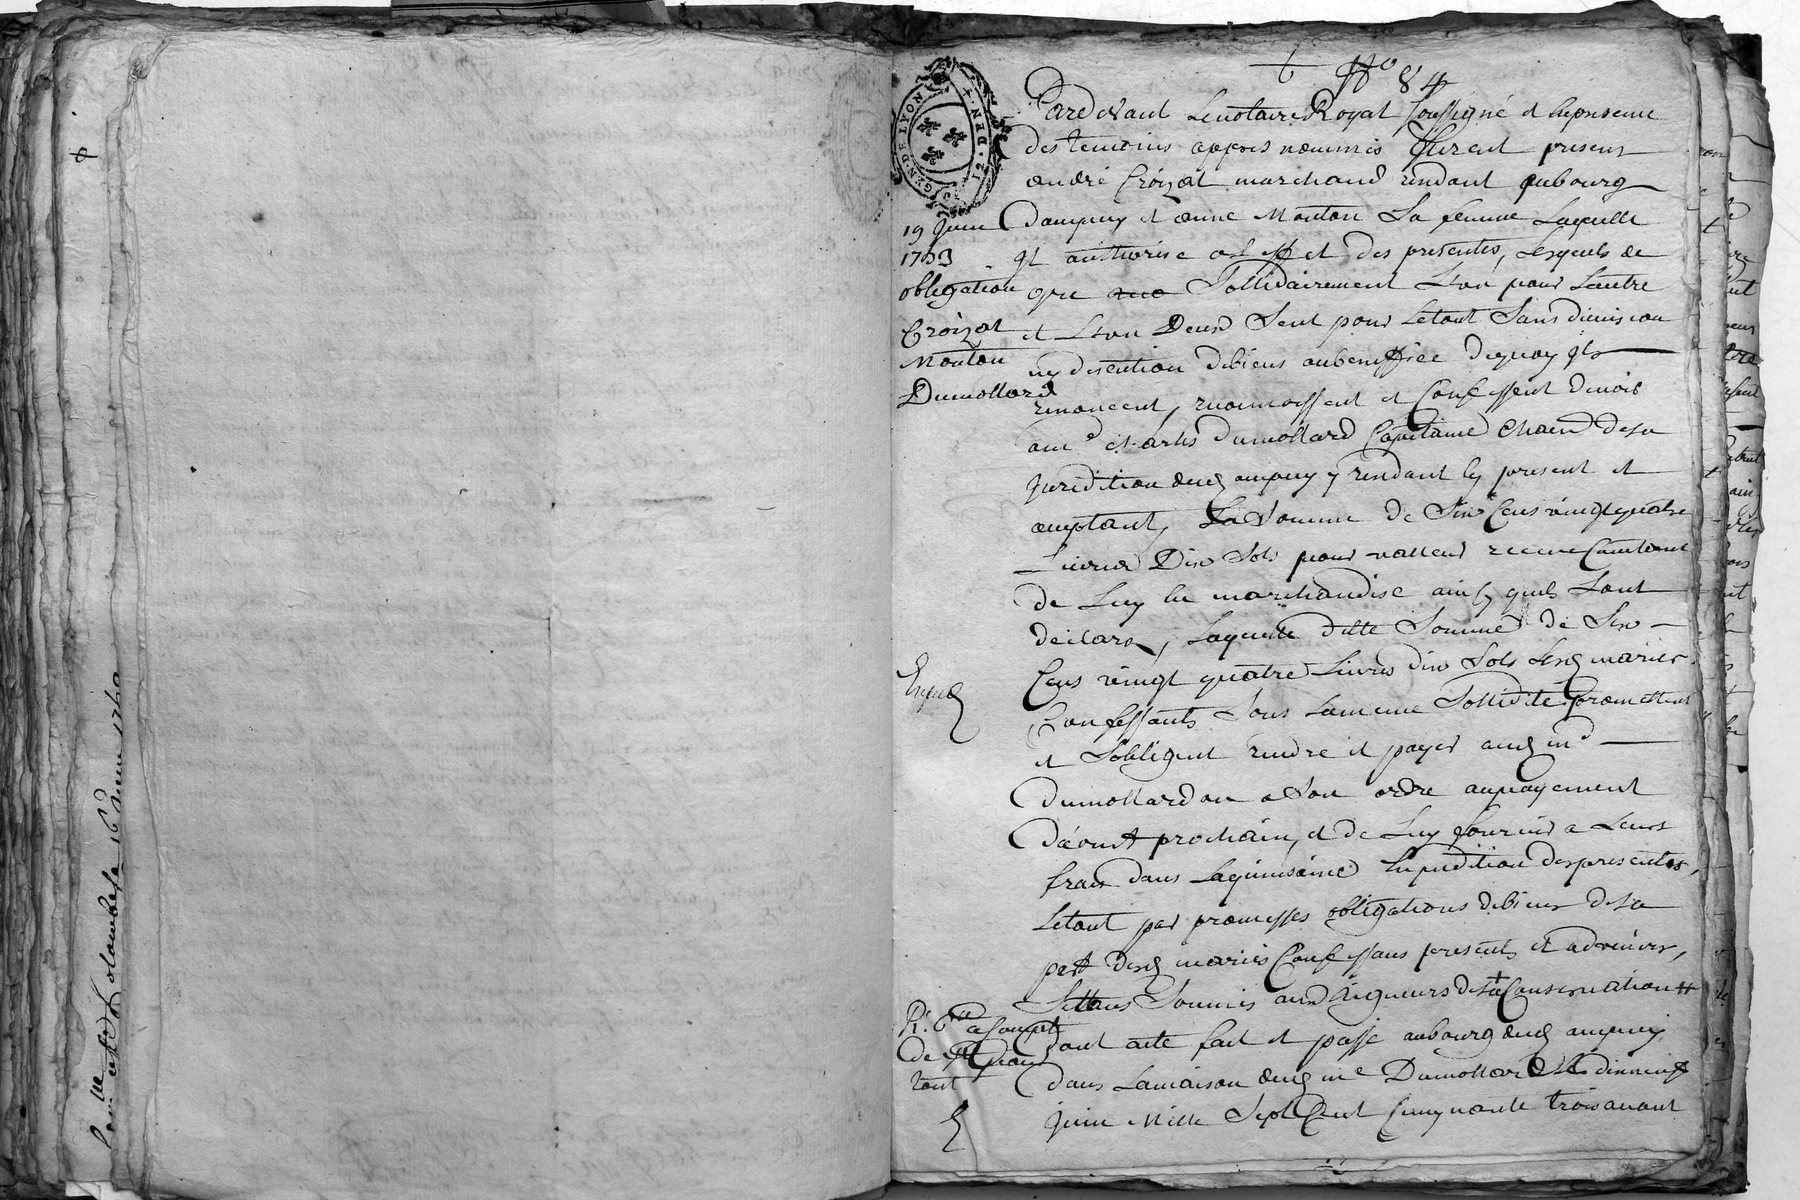 N° 84
GEN·DE LYON
12·DEN
Pardevant Le notaire Royal soussigné et En presence
des temoins appres nommés furent presens
andré Croizat marchand residant au bourg
dampuy et anne Montan Sa femme Laquelle
Il authorise a l'effet des presentes, Lesquels de
gré Sollidairement L'un pour Lautre
et L'un Deux Seul pour Letout Sans division
ny disention debiens au beneffice dequoy Ils
renoncent, reconnoissent et Confessent devoir
a mr Charles Dumollard Capitaine Chatn de la
Juridition dud ampuy y residant Icy present et
acceptant, La Somme de Six Cens vingt quatre
Livres Dix Sols pour valleur receue Comptant
de Luy En marchandise ainsy quils L'ont
declaré, Laquelle ditte Somme de Six
Cens vingt quatre Livres dix Sols Lesd mariés
Confessants Sous La meme Solliditté promettent
et Sobligent rendre et payer aud mr
Dumollard ou a Son ordre au payement
d'aoust prochain, et de Luy fournir a Leurs
frais dans La quinsaine Expedition des presentes,
Letout par promesses obligations de biens de la
part desd mariés Confessans presents et advenirs,
Settans Soumis aux Rigueurs de la Conservation
dont acte fait et passé au bourg dud ampuy
dans La maison dud mr Dumollard Le dixneuf
Juin Mille Sept Cent Cinquante trois avant
19 Juin
1753
obligation
Croizat
Montan
Dumollard
Exped
R. 6tt
a Compte
de
tout
Colombeste 16e Juin 1740